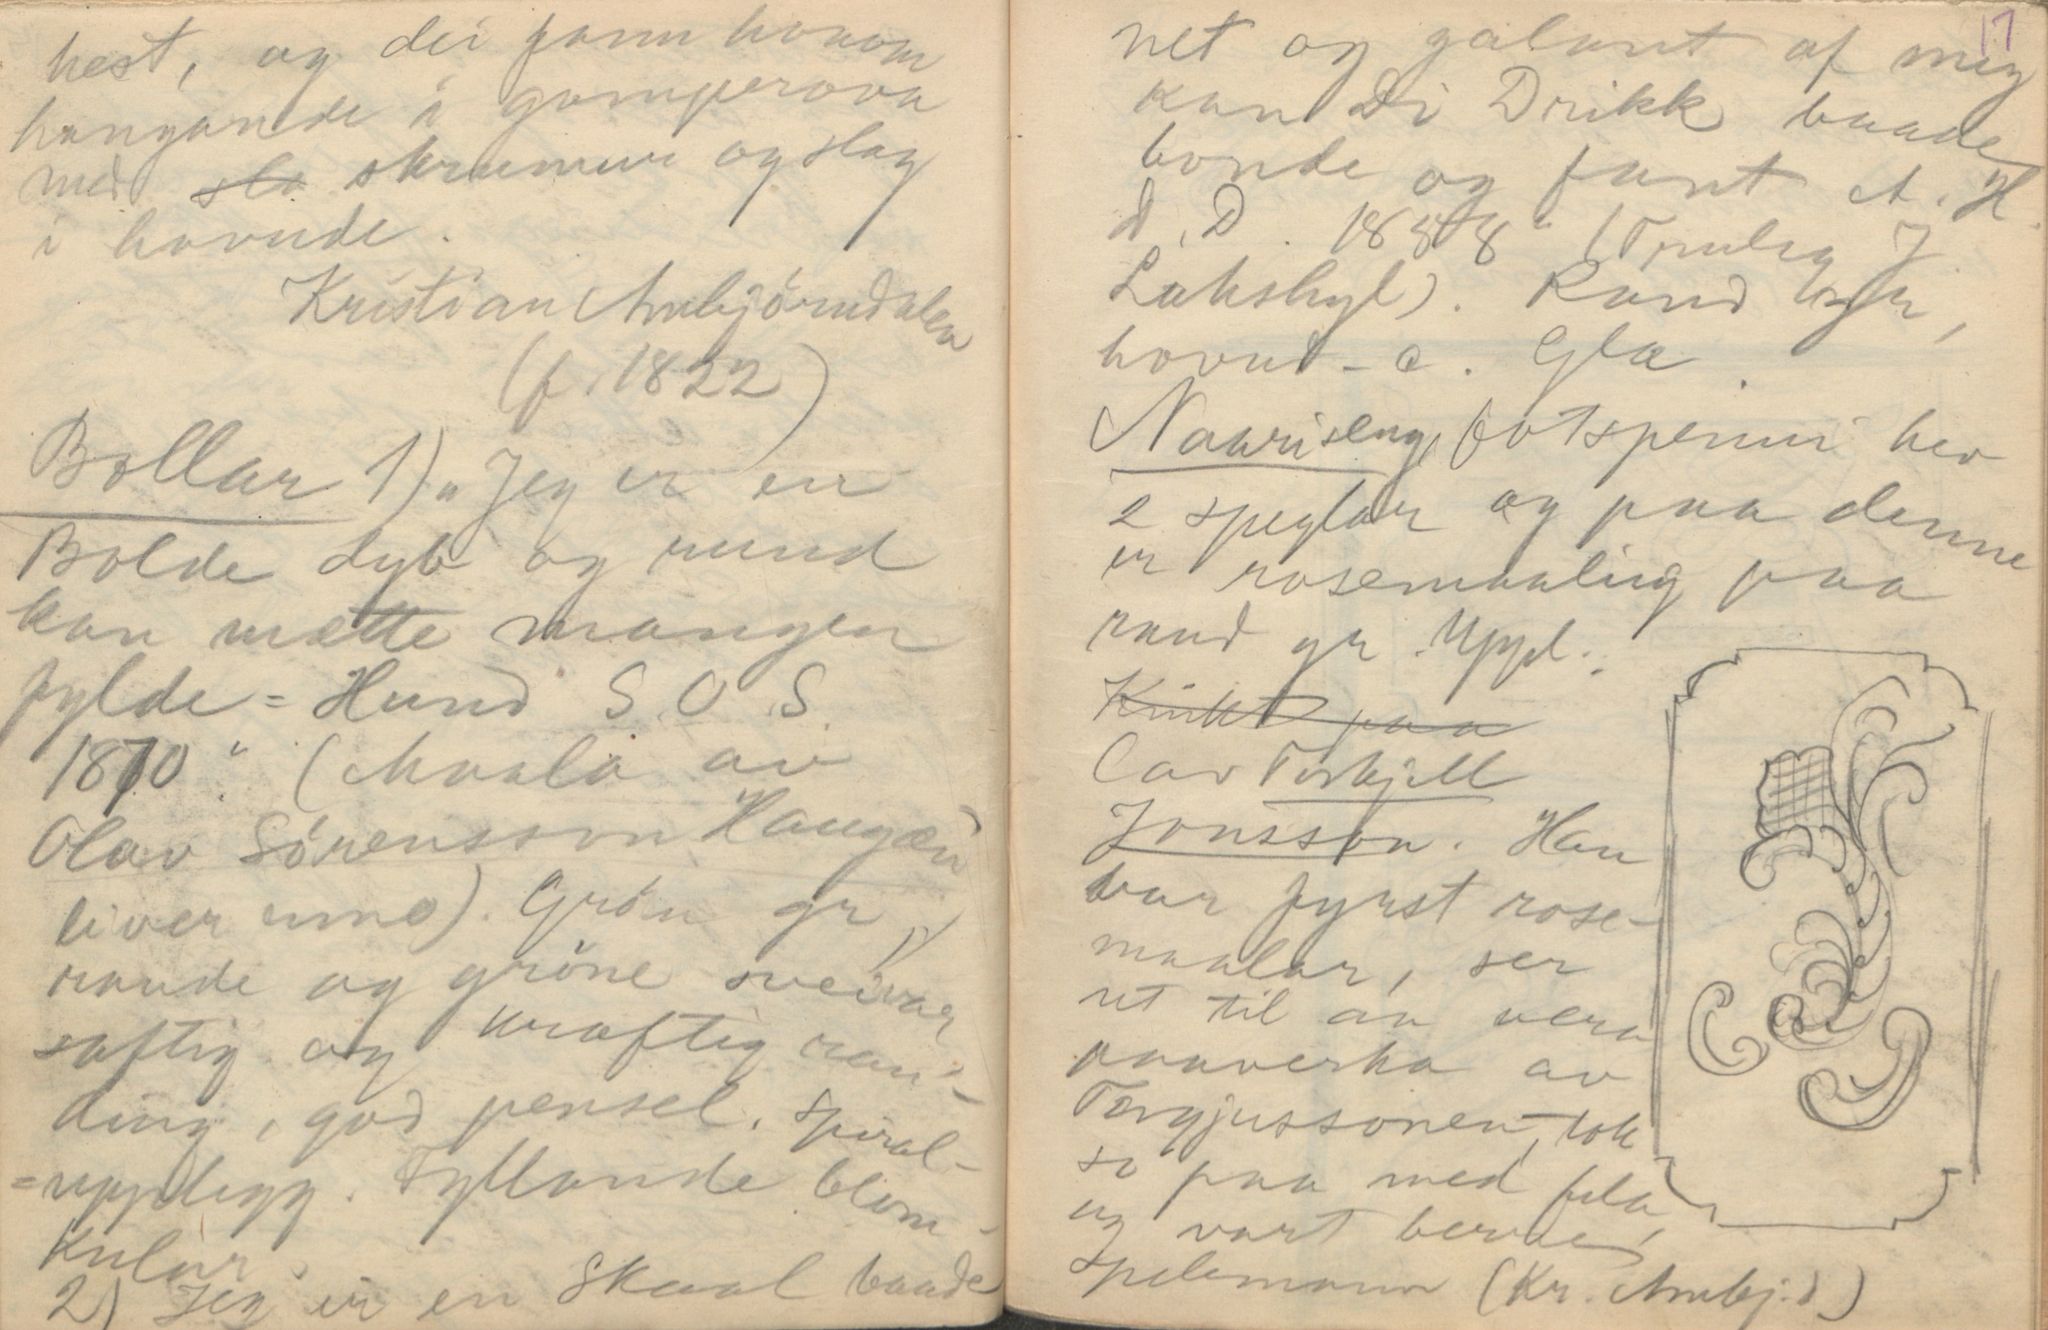 hest, og dei fann honom
hangande i gamperova
med sla skrummur og slag
i hovude.
Kristian Arnbjörndalen
(f. 1822)
Bollar 1) „Jeg er en
Bolde dyb og rund
kan mætte mangen
fylde = Hund S. O. S.
1810“ (Maala av
Olav Sörensson Haugen
liver enno). Grön gr,
raude og gröne sveivar
saftig og kraftig ran-
ding, god pensel. Spiral-
=upplegg. Fyllande blom-
Kular.
2) Jeg er en Skaal baade
17
net og galant af meg
kan Di Drikk baade
bonde og fant A. H.
d. D. 1838“ (Truleg J.
Lukshyl). Raud gr,
hovud - a. Gla.
Naariseng, fotspenni hev
2 speglar og paa denne
er rosemaaling paa
raud gr. Uppl.
paa
Cav Torkjell
Jonsson. Han
var fyrst rose-
maalar, ser
ut til aa vera
paaverka av
Torgjussonen, tok
so paa med fela
og vart berre
spelemann (Kr. Arnbj.d.)